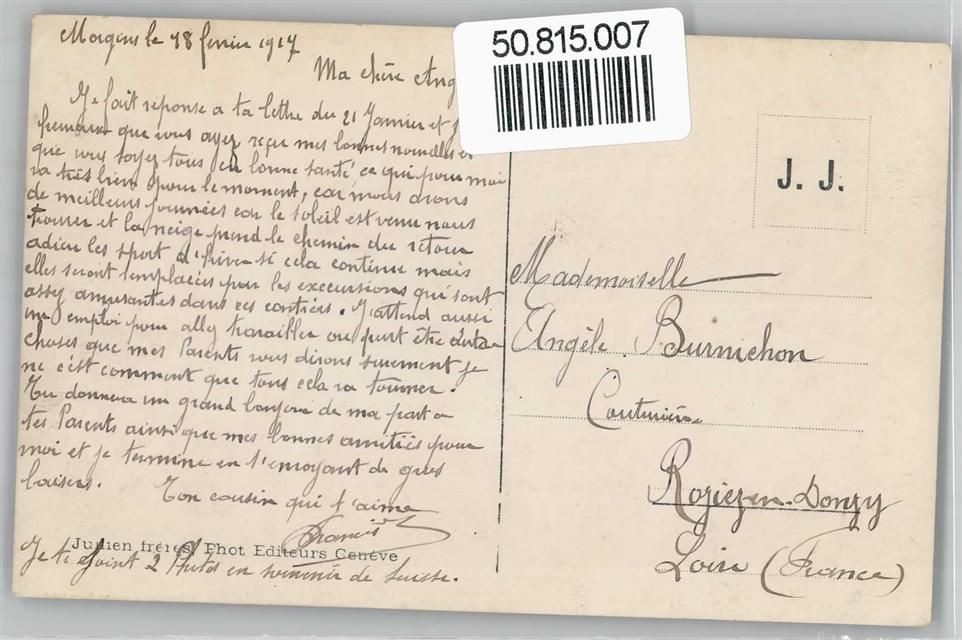 Morgins le 18 fevrie 1917
Ma chère Ang
Je fait réponse a ta lettre du 21 Janvier et
heureux que vous ayez reçu mes bonnes nouvelles et
que vous soyez tous en bonne santé ce qui pour moi
va très bien pour le moment, car nous avons
de meilleurs journées car le soleil est venu nous
trouver et la neige prend le chemin du retour
adieu les sport d'hiver si cela continue mais
elles seront remplacées par les excecursions qui sont
assez amusantes dans ces contrées. J'attend aussi
un emploi pour allez travailler ou peut être autre
choses que mes Parents vous dirons surement je
ne c'est comment que tous cela va tourner.
Tu donnera un grand bonjour de ma part a
tes Parents ainsi que mes bonnes amitiés pour
moi et je termine en t'envoyant de gros
baisers.
Ton cousin qui t'aime
Francis
Jullien frères, Phot Editeurs Genève
Je te joint 2 Photos en souvenir de Suisse.
50.815.007
J. J.
Mademoiselle
Angèle Burnichon
Couturière
Rozier-en-Donzy
Loire (France)